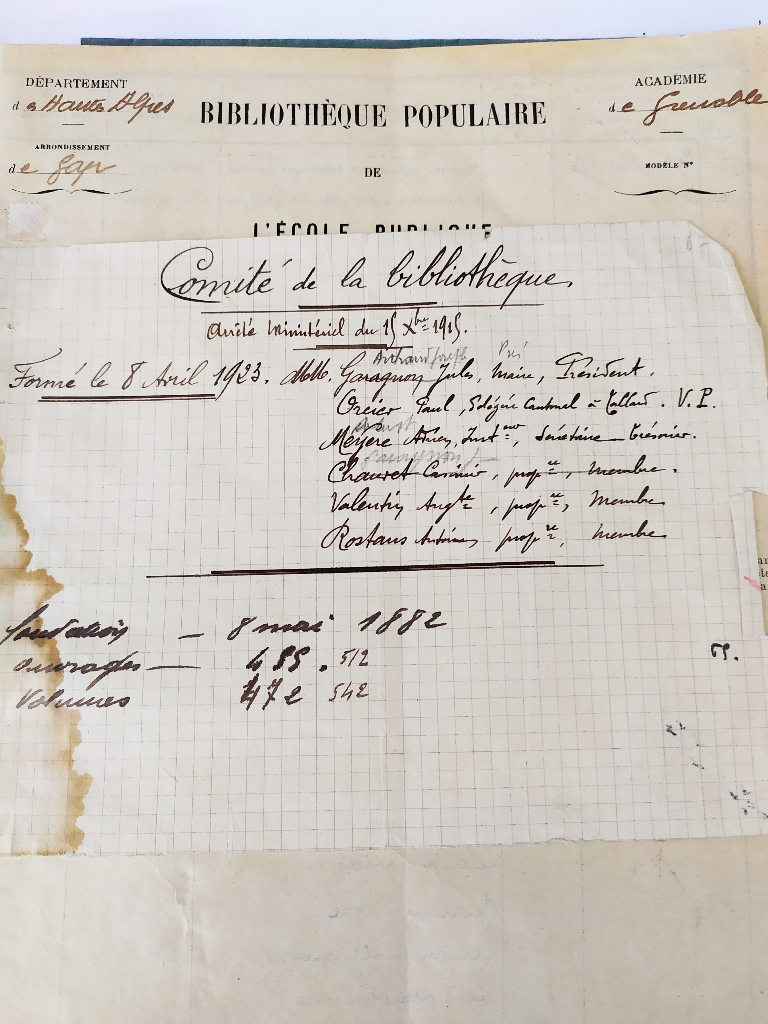 DÉPARTEMENT
des Hautes Alpes
ARRONDISSEMENT
de Gap
BIBLIOTHÈQUE POPULAIRE
DE
L'ÉCOLE PUBLIQUE
ACADÉMIE
de Grenoble
MODÈLE Nº
Comité de la bibliothèque
Arrêté Ministériel du 15 Xbre 1915.
Formé le 8 Avril 1923. MM. Garagnon Jules, Maire, Président.
Paul, Délégué Cantonal à Tallard. V. P.
Meyère Instr, Secrétaire Trésorier.
Chauvet Casimir, propre, Membre.
Valentin Augte, propre, Membre
Rostans Antoine, propre, membre
fondation — 8 mai 1882
ouvrages — 512
Volumes 472 542